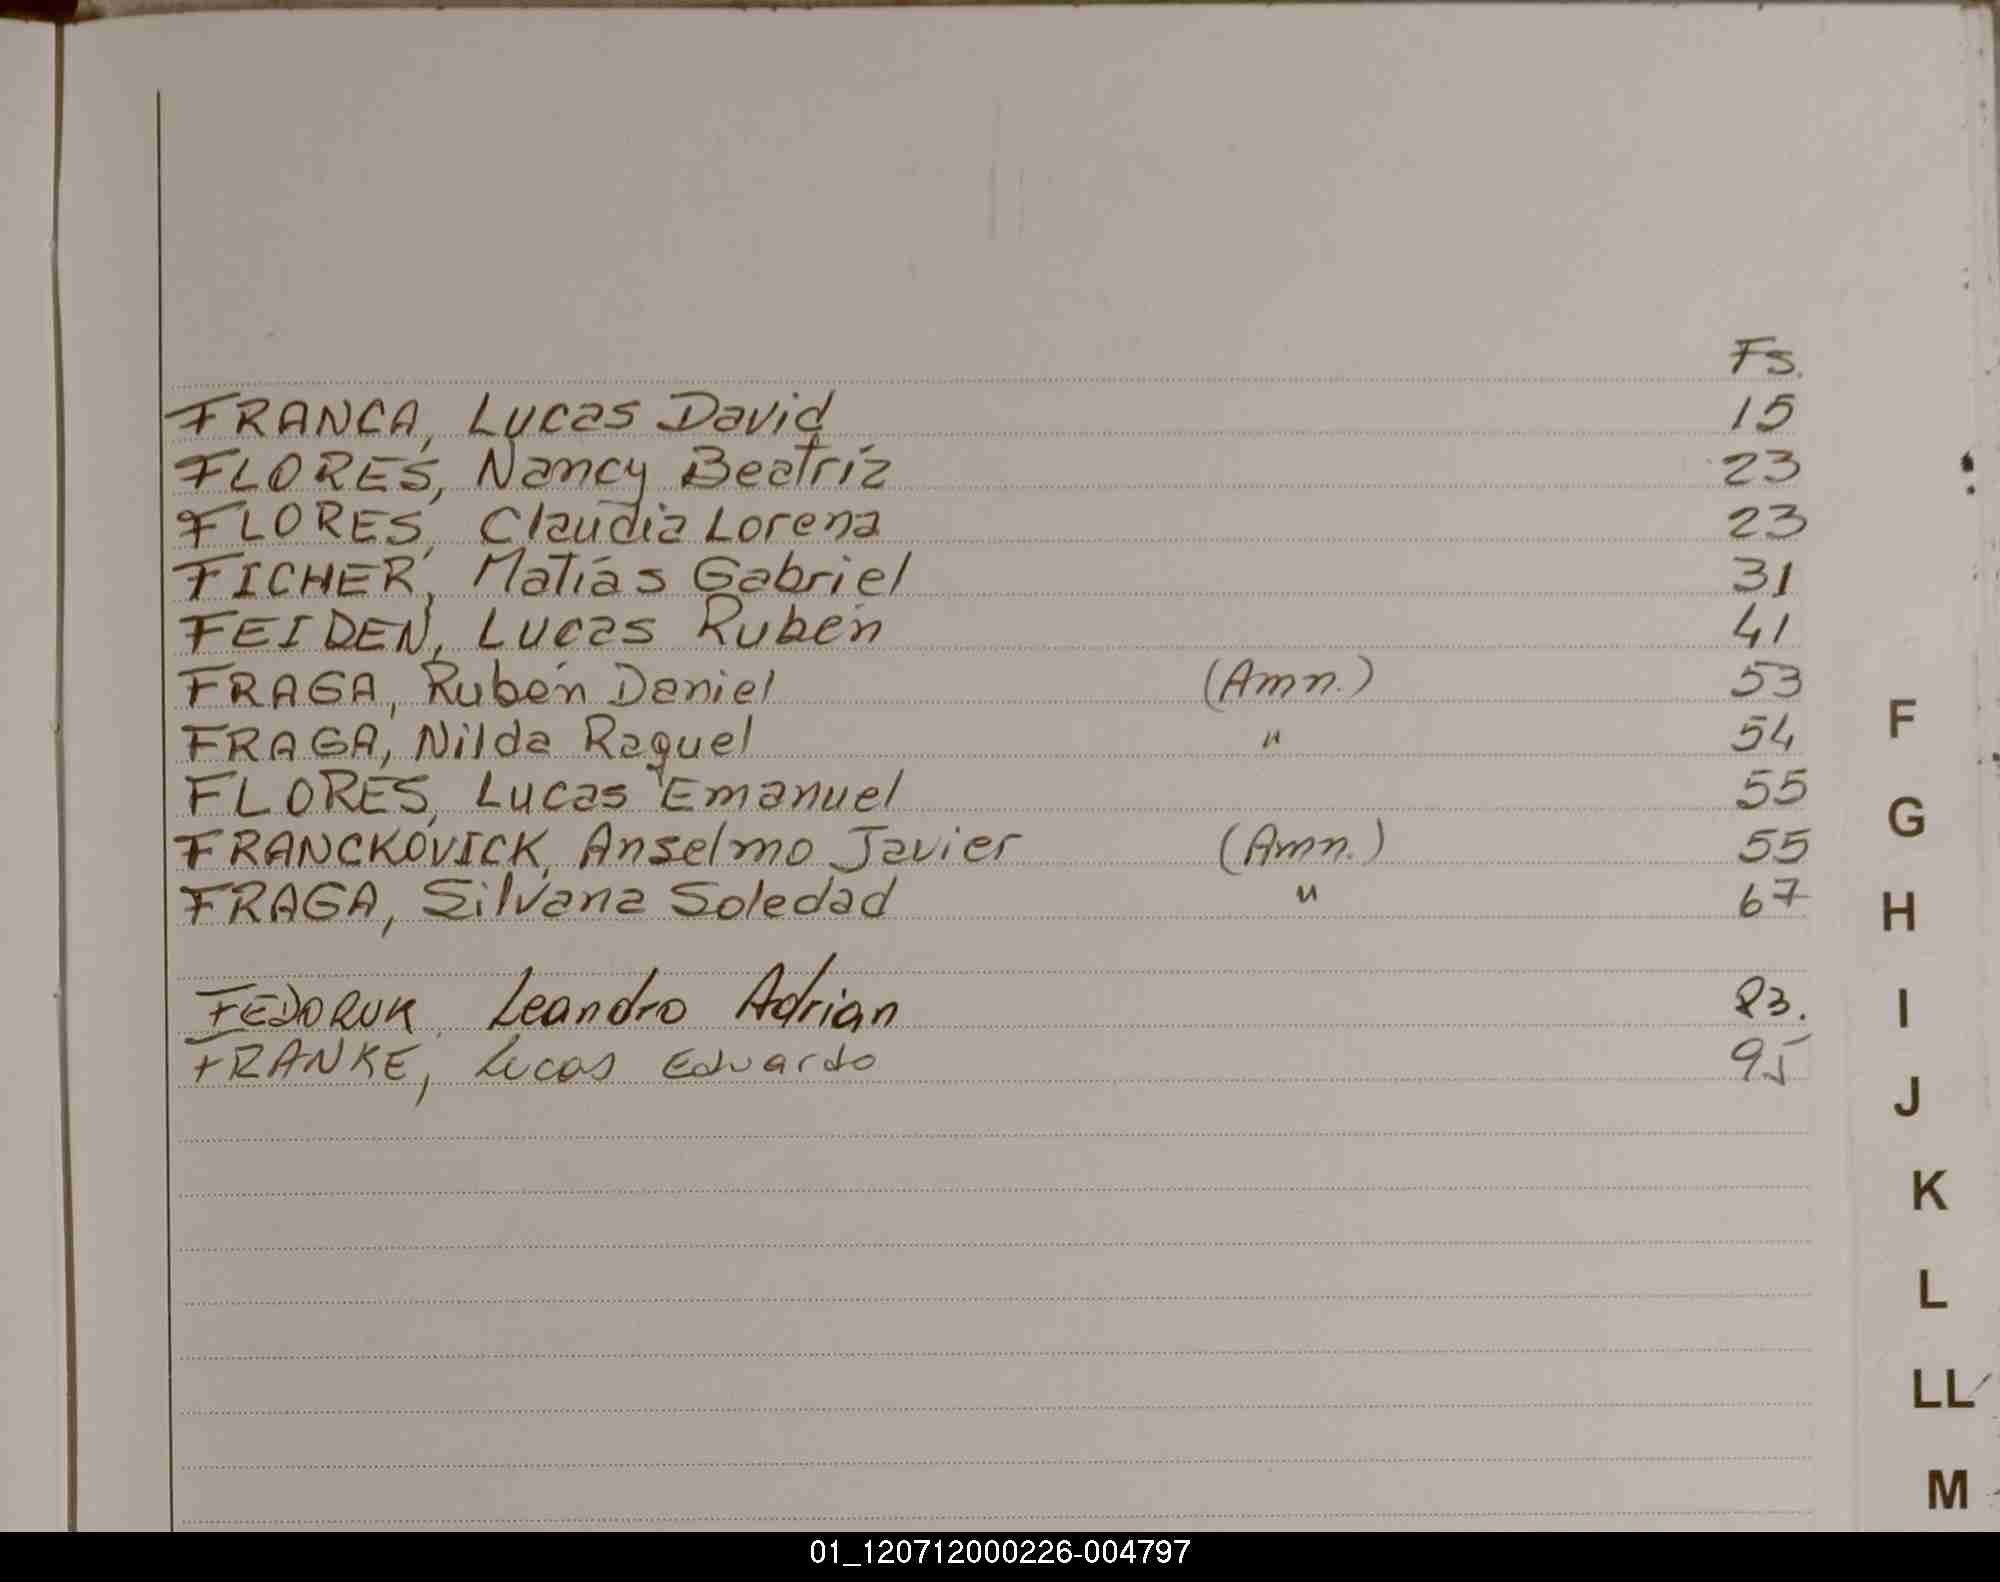 Fs.
FRANCA, Lucas David 15
FLORES, Nancy Beatríz 23
FLORES, Claudia Lorena 23
FICHER, Matías Gabriel 31
FEIDEN, Lucas Rubén 41
FRAGA, Rubén Daniel (Amn.) 53
FRAGA, Nilda Raquel " 54
FLORES, Lucas Emanuel 55
FRANCKOVICK, Anselmo Javier (Amn.) 55
FRAGA, Silvana Soledad " 67
FEDORUK, Leandro Adrian 83.
FRANKE, Lucas Eduardo 95
F
G
H
I
J
K
L
LL
M
01_120712000226-004797